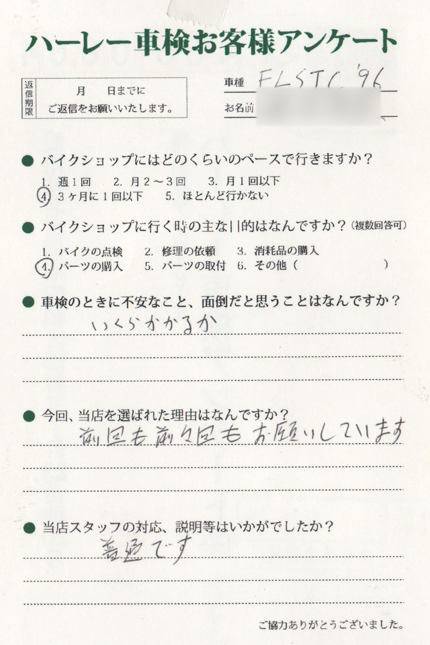 ハーレー車検お客様アンケート
返信期限
月　日までに
ご返信をお願いいたします。
車種 FLSTC '96
お名前
● バイクショップにはどのくらいのペースで行きますか？
1. 週1回　2. 月2～3回　3. 月1回以下
4. 3ヶ月に1回以下　5. ほとんど行かない
● バイクショップに行く時の主な目的はなんですか？（複数回答可）
1. バイクの点検　2. 修理の依頼　3. 消耗品の購入
4. パーツの購入　5. パーツの取付　6. その他（　　　　）
● 車検のときに不安なこと、面倒だと思うことはなんですか？
いくらかかるか
● 今回、当店を選ばれた理由はなんですか？
前回も前々回もお願いしています
● 当店スタッフの対応、説明等はいかがでしたか？
普通です
ご協力ありがとうございました。